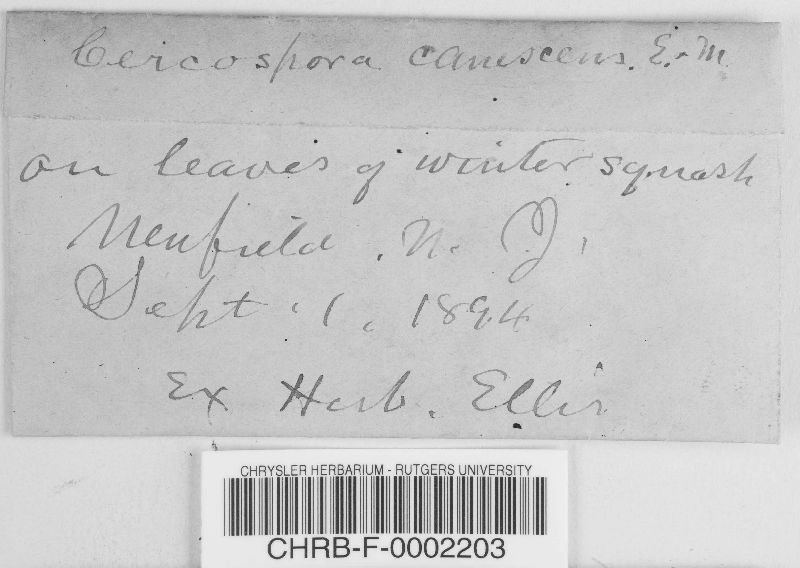 Cercospora canescens. E. & M.
on leaves of winter squash
Newfield, N. J.
Sept. 1, 1894
Ex Herb. Ellis
CHRYSLER HERBARIUM - RUTGERS UNIVERSITY
CHRB-F-0002203